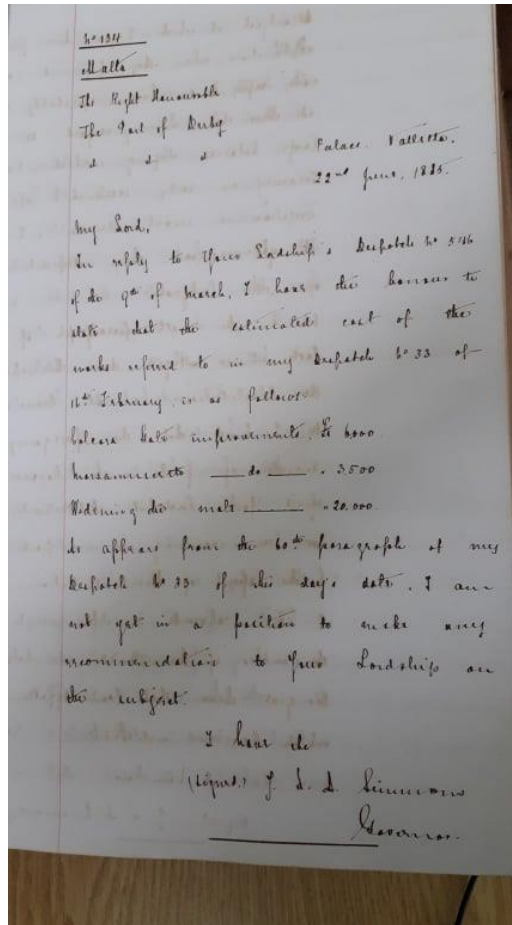 No 134
Malta
The Right Honourable
The Earl of Derby
& & &
Palace. Valletta.
22nd June, 1885.
My Lord,
In reply to Your Lordship's Despatch No
of the 9th of March, I have the honour to
state that the estimated cost of the
works referred to in my Despatch No 33 of
February, is as follows
Calcara Gate improvements. £ 6000
Marsamuscetto do " 3.500
Widening the mole " 20.000
As appears from the 60th paragraph of my
Despatch No 33 of this day's date, I am
not yet in a position to make any
recommendation to Your Lordship on
the subject.
I have &c
(signed) J. L. A. Simmons
Governor.